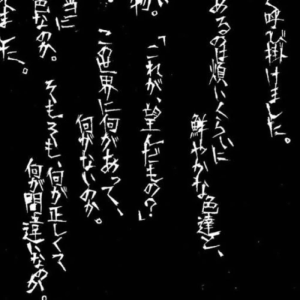 く呼び掛けました。
あるのは煩いくらいに
鮮やかな色達と、
物。
「これが、望んだもの?」
この世界に何があって、
何がないのか。
当に
色なのか。
そもそも、何が正しくて
何が間違いなのか。
ました。